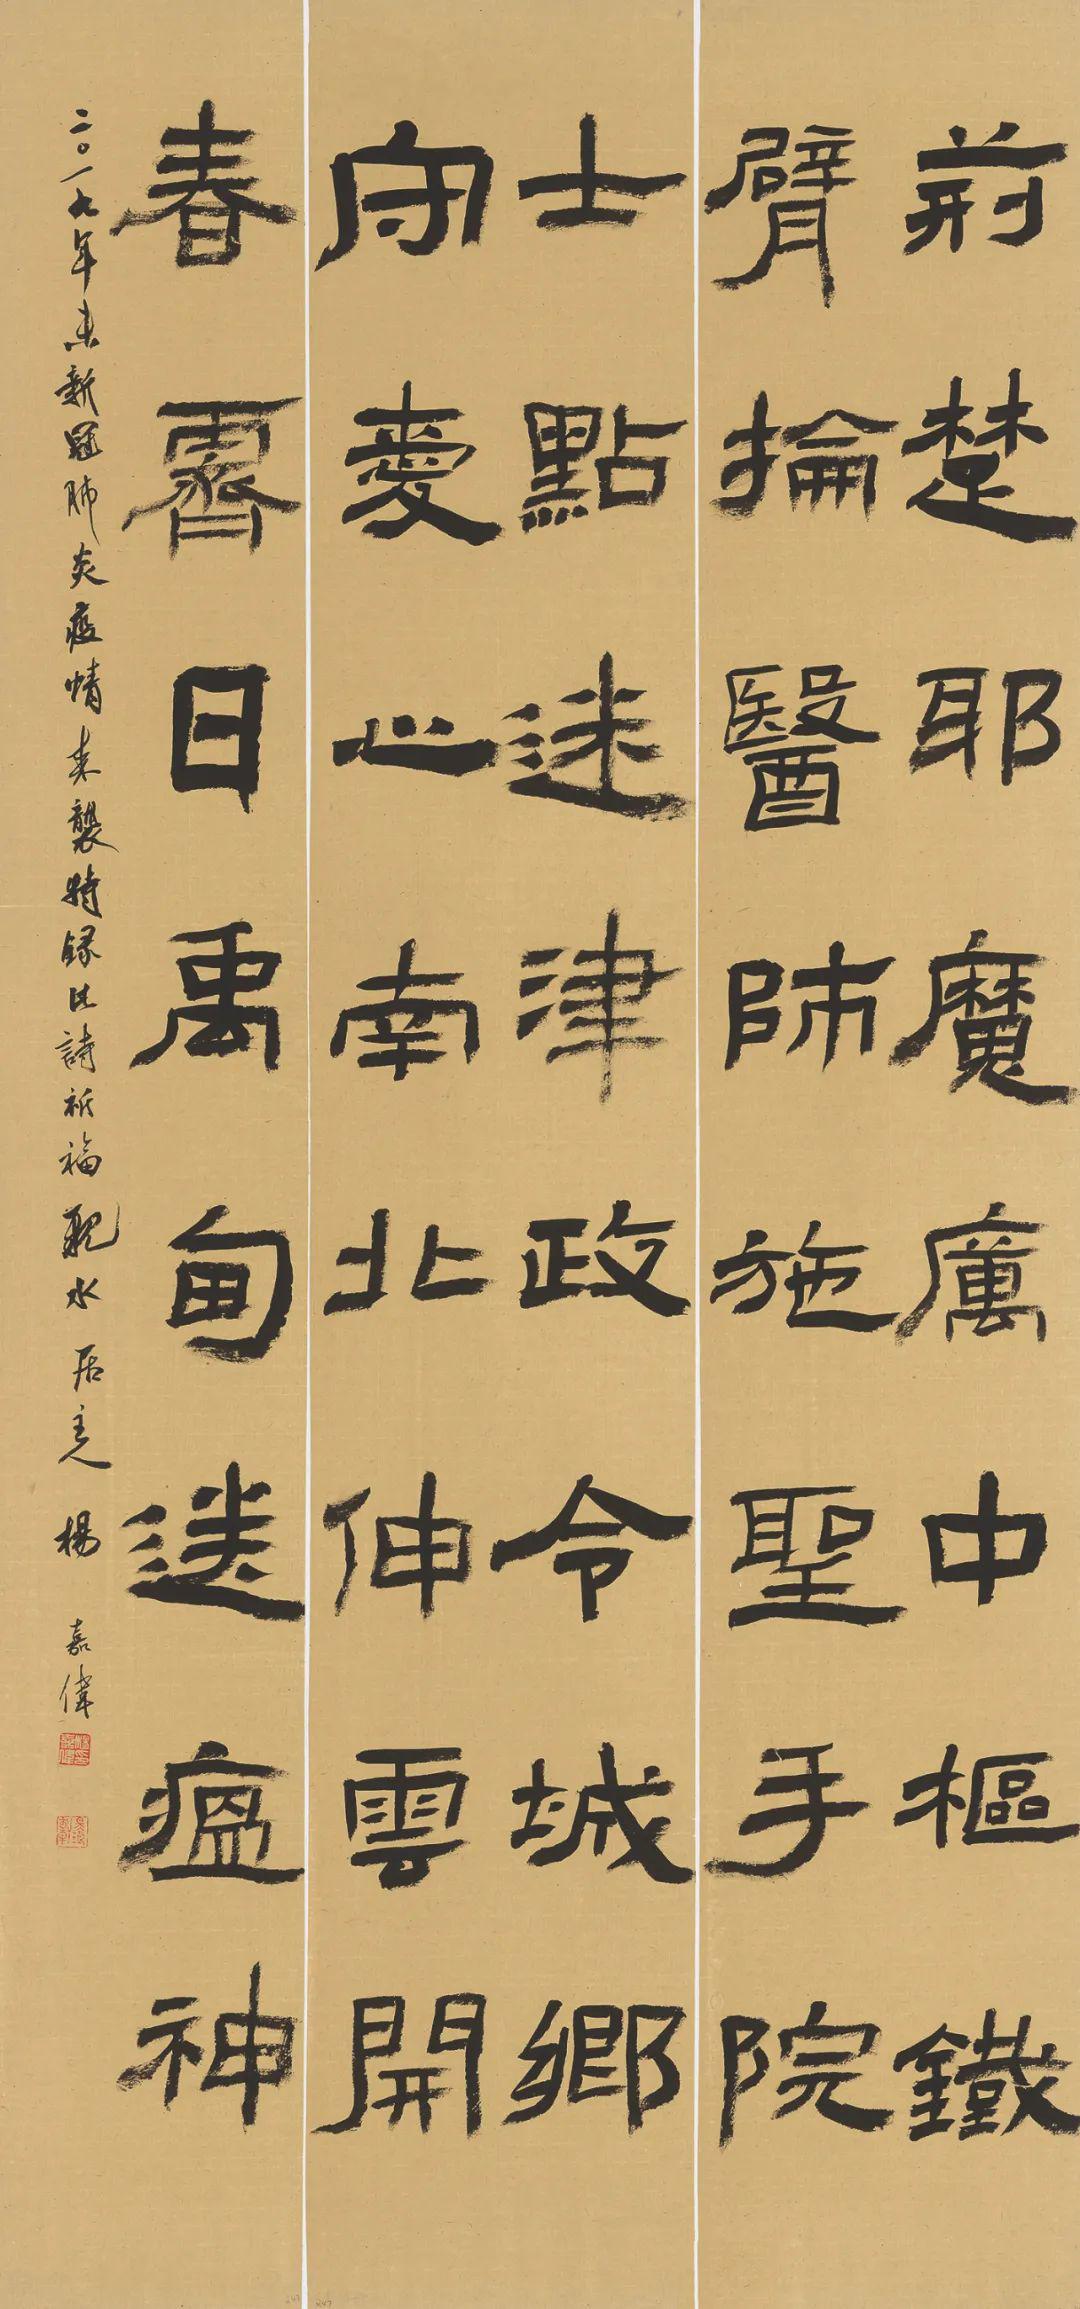 荊楚耶魔厲中樞鐵
臂掄醫師施聖手院
士點迷津政令城鄉
守愛心南北伸雲開
春霽日禹甸送瘟神
二〇一九年末新冠肺炎疫情来襲特録此詩祈福 觀水居主人 楊嘉偉